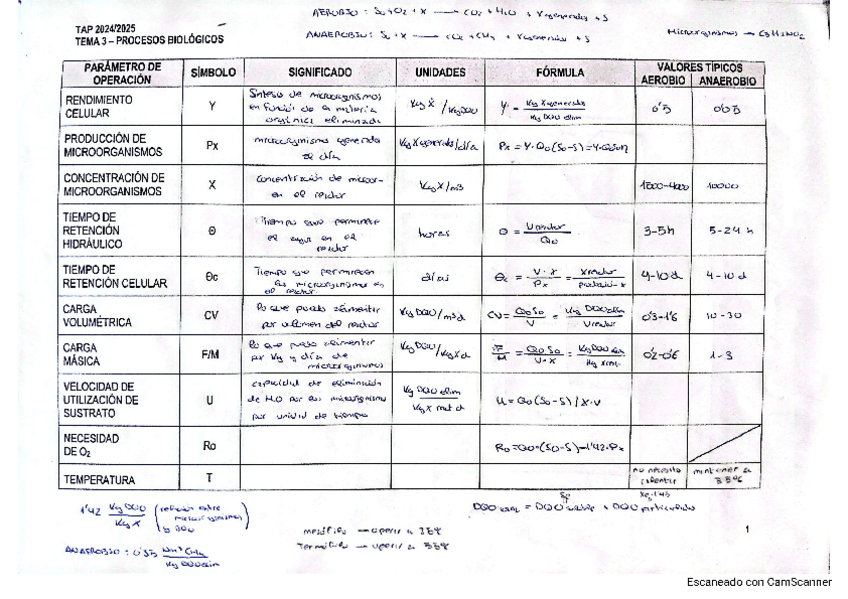 AEROBIO : So + O2 + X → CO2 + H2O + X generados + S
TAP 2024/2025
TEMA 3 – PROCESOS BIOLÓGICOS
ANAEROBIO : So + X → CO2 + CH4 + X generados + S
Microorganismos → C5H7NO2
PARÁMETRO DE OPERACIÓN SÍMBOLO SIGNIFICADO UNIDADES FÓRMULA VALORES TÍPICOS
AEROBIO ANAEROBIO
RENDIMIENTO CELULAR Y Síntesis de microorganismos en función de la materia orgánica eliminada Kg X / Kg DQO Y = Kg X generados / Kg DQO elim 0'5 0'05
PRODUCCIÓN DE MICROORGANISMOS Px microorganismos generados al día Kg X generados/día Px = Y · Qo (So-S) = Y · Qo
CONCENTRACIÓN DE MICROORGANISMOS X Concentración de microor- en el reactor Kg X/m3 1500-4000 10000
TIEMPO DE RETENCIÓN HIDRÁULICO Θ Tiempo que permanece el agua en el reactor horas Θ = V reactor / Qo 3-5h 5-24 h
TIEMPO DE RETENCIÓN CELULAR Θc Tiempo que permanecen los microorganismos en el reactor días Θc = V · X / Px = X reactor / 4-10 d 4-10 d
CARGA VOLUMÉTRICA CV lo que puedo alimentar por volumen del reactor Kg DQO/m3 d CV = Qo So / V = Kg DQO / V reactor 0'3-1'6 10-30
CARGA MÁSICA F/M lo que puedo alimentar por Kg y día de microorganismos Kg DQO/Kg X d F/M = Qo So / V · X = Kg DQO / Kg X 0'2-0'6 1-3
VELOCIDAD DE UTILIZACIÓN DE SUSTRATO U capacidad de eliminación de M.O por los microorganismos por unidad de tiempo Kg DQO elim / Kg X d U = Qo (So-S) / X · V
NECESIDAD DE O2 Ro Ro = Qo · (So-S) - 1'42 · Px
TEMPERATURA T no necesito calentar mantener a
1'42 Kg DQO / Kg X (relación entre microorganismos y DQO)
DQO = DQO soluble + DQO particulado
mesófilo → operar a 35ºC
Termófilo → operar a 55ºC
ANAEROBIO : 0'35 Nm3 CH4 / Kg DQO elim
1
Escaneado con CamScanner